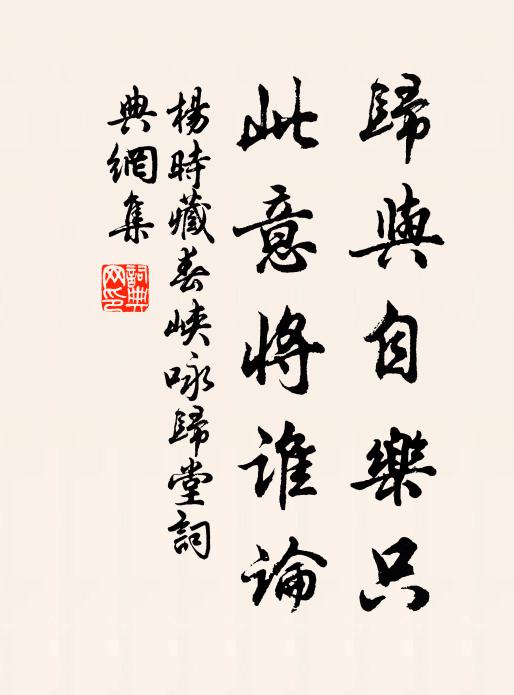 歸與自樂只
此意將誰論
楊時藏春峽咏歸堂詞
典網集
詞典
网印